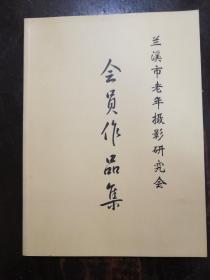 兰溪市老年摄影研究会
会员作品集